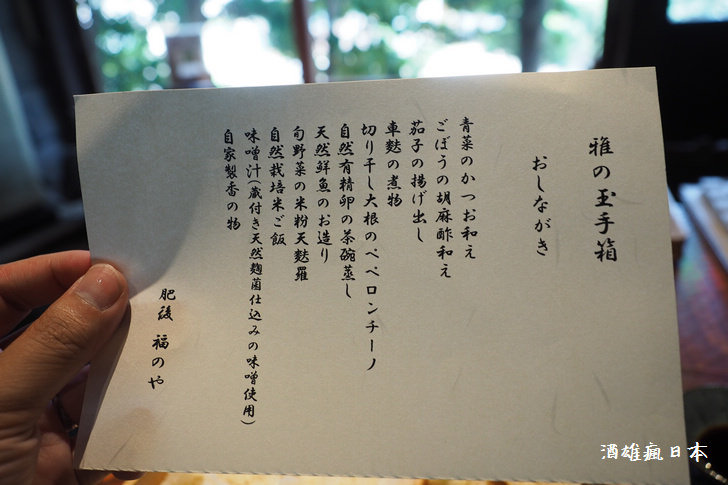 雅の玉手箱
おしながき
青菜のかつお和え
ごぼうの胡麻酢和え
茄子の揚げ出し
車麩の煮物
切り干し大根のペペロンチーノ
自然有精卵の茶碗蒸し
天然鮮魚のお造り
旬野菜の米粉天麩羅
自然栽培米ご飯
味噌汁(蔵付き天然麹菌仕込みの味噌使用)
自家製香の物
肥後 福のや
酒雄瘋日本